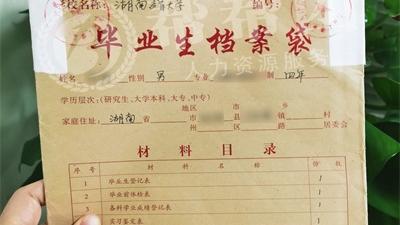 学校名称: 湖南 大学 编号:
毕业生档案袋
人力资源服务
姓名 性别 男 专业 四年
学历层次:(研究生、大学本科、大专、中专)
地区 市 乡
家庭住址: 湖南 省 市 县 镇 村
州 区 街 居委会
材料目录
序号 材料名称 份数
1 毕业生登记表 1
2 毕业前体检表 1
3 各科学业成绩登记表 1
实习鉴定表 1